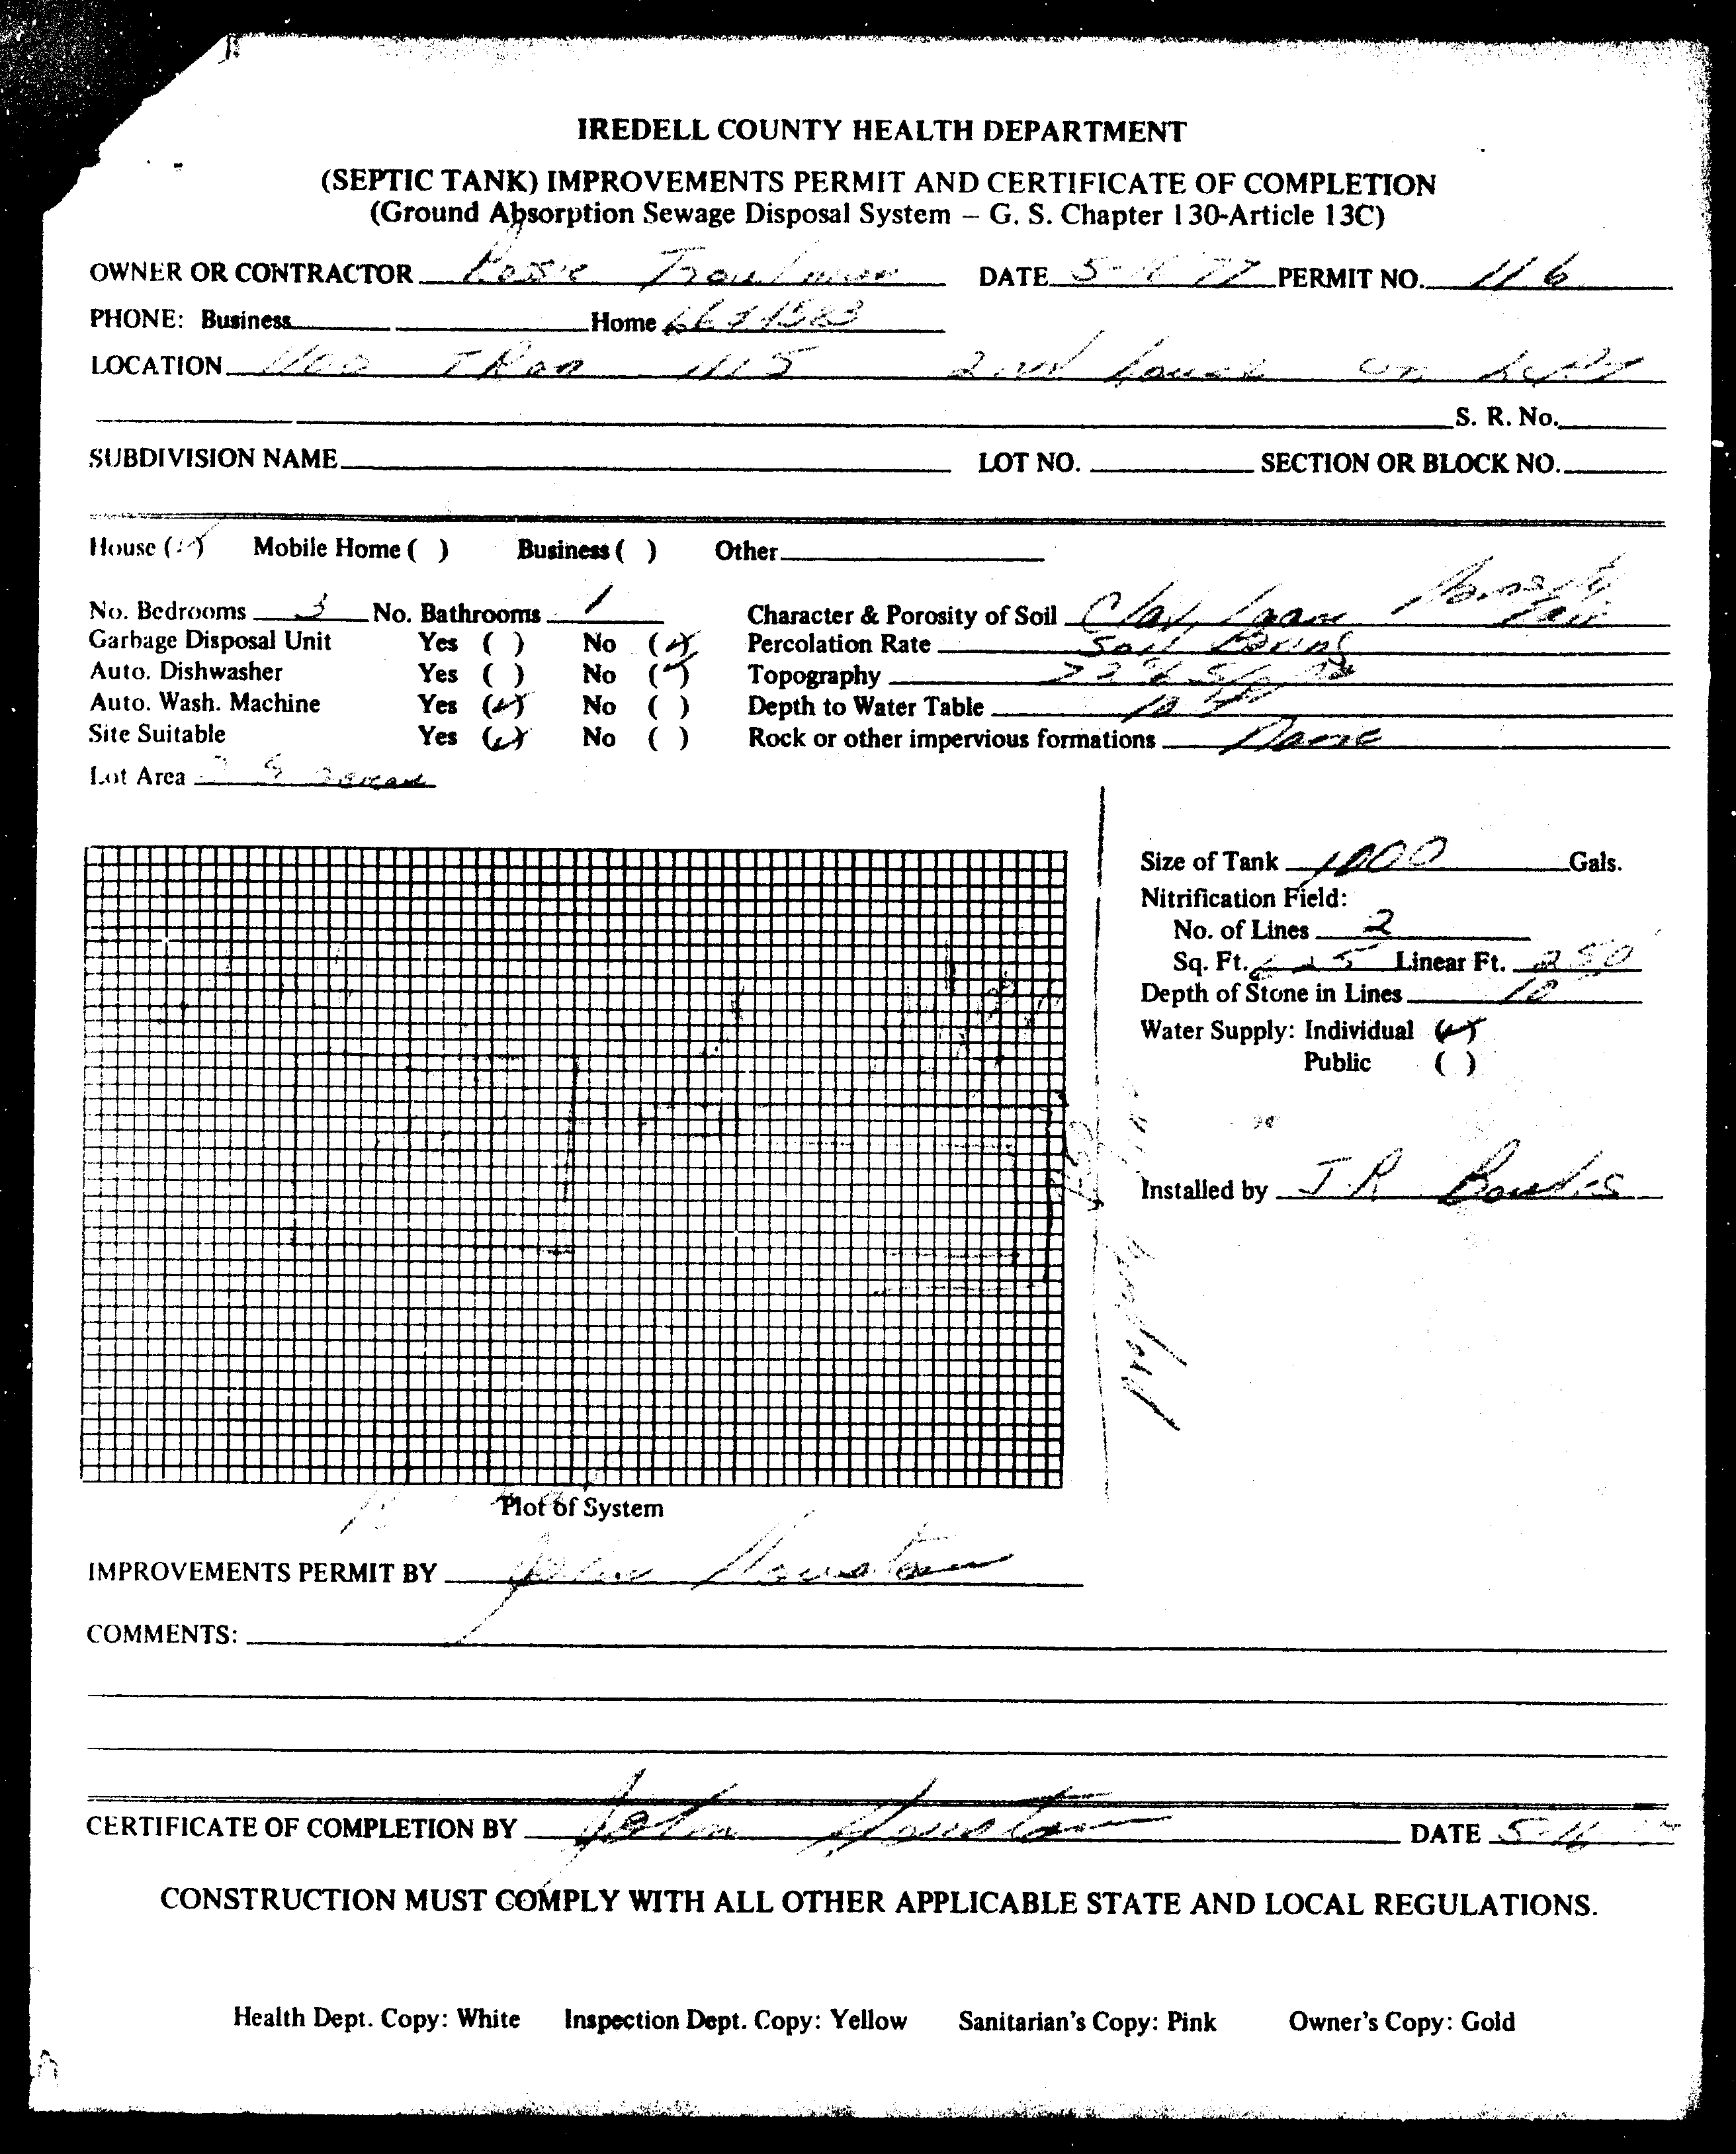 IREDELL COUNTY HEALTH DEPARTMENT
(SEPTIC TANK) IMPROVEMENTS PERMIT AND CERTIFICATE OF COMPLETION
(Ground Absorption Sewage Disposal System – G. S. Chapter 130-Article 13C)
OWNER OR CONTRACTOR Troutman DATE PERMIT NO. 116
PHONE: Business Home
LOCATION 115 2nd house on left
S. R. No.
SUBDIVISION NAME LOT NO. SECTION OR BLOCK NO.
House ( ) Mobile Home ( ) Business ( ) Other
No. Bedrooms 3 No. Bathrooms 1 Character & Porosity of Soil Clay Loam Porosity Fair
Garbage Disposal Unit Yes ( ) No (✓) Percolation Rate Soil Boring
Auto. Dishwasher Yes ( ) No (✓) Topography
Auto. Wash. Machine Yes (✓) No ( ) Depth to Water Table
Site Suitable Yes (✓) No ( ) Rock or other impervious formations None
Lot Area
Size of Tank 1000 Gals.
Nitrification Field:
No. of Lines 2
Sq. Ft. 625 Linear Ft.
Depth of Stone in Lines
Water Supply: Individual (✓)
Public ( )
Installed by J.R
Plot of System
IMPROVEMENTS PERMIT BY John Houston
COMMENTS:
CERTIFICATE OF COMPLETION BY John Houston DATE 5-16
CONSTRUCTION MUST COMPLY WITH ALL OTHER APPLICABLE STATE AND LOCAL REGULATIONS.
Health Dept. Copy: White Inspection Dept. Copy: Yellow Sanitarian's Copy: Pink Owner's Copy: Gold